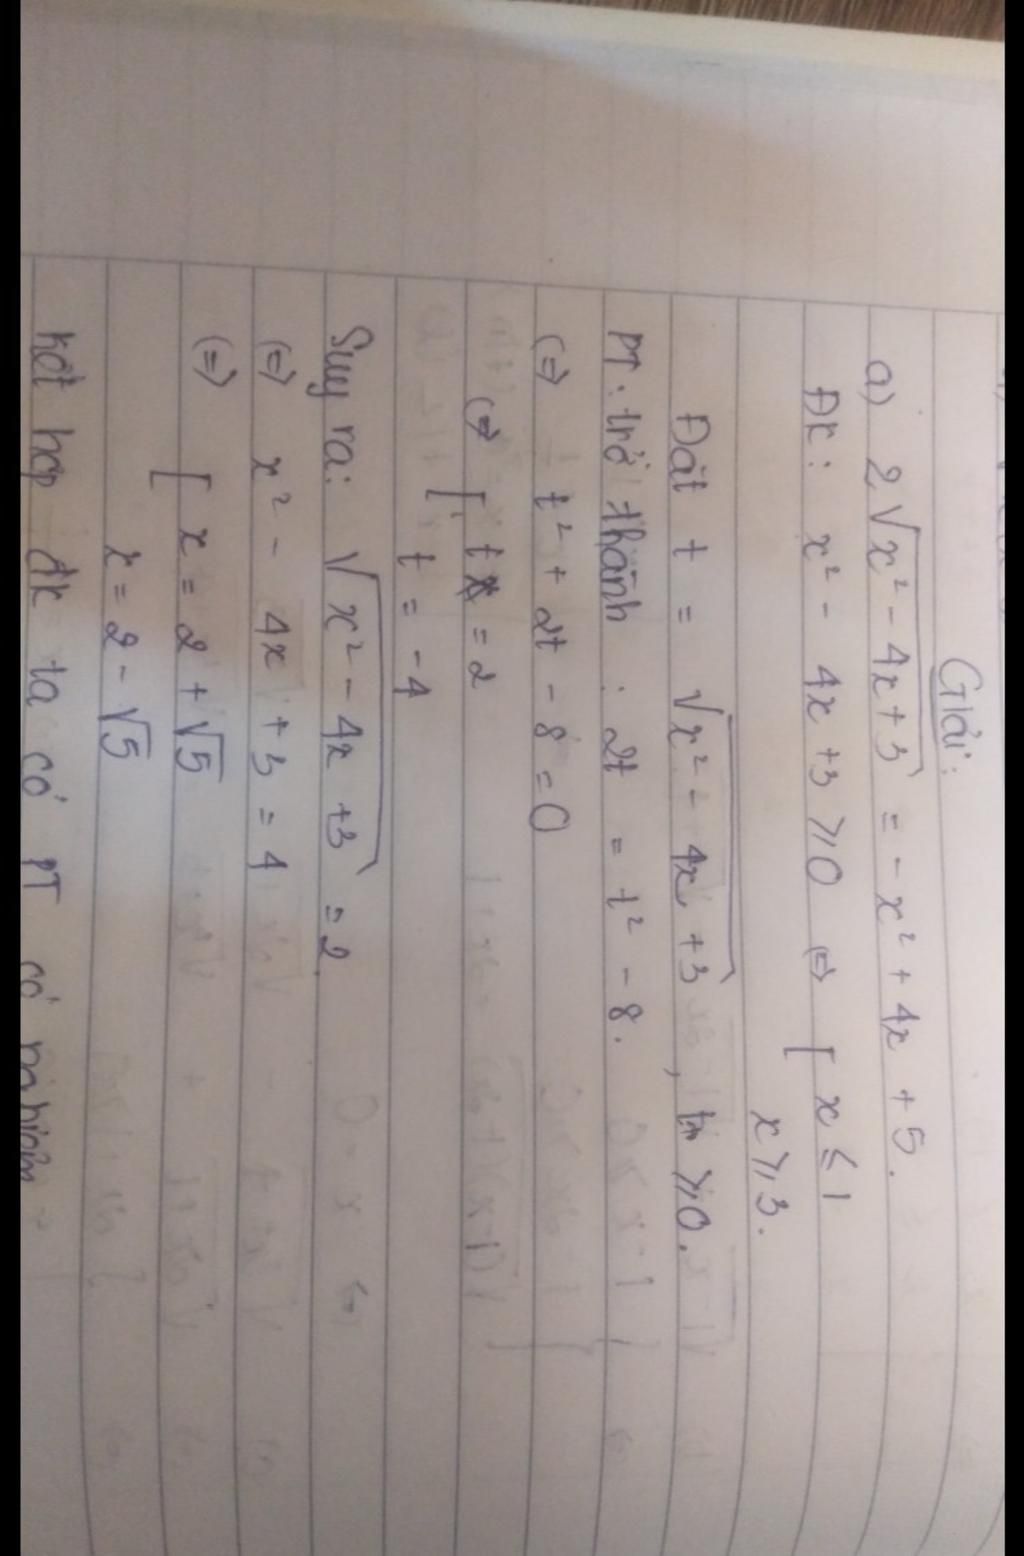 Giải:
a) 2√(x² - 4x + 3) = - x² + 4x + 5.
ĐK: x² - 4x + 3 ⩾ 0 ⇔ [ x ≤ 1
x ⩾ 3.
Đặt t = √(x² - 4x + 3), t ⩾ 0.
PT: trở thành : 2t = t² - 8.
⇔ t² + 2t - 8 = 0
⇔ [ t = 2
t = -4
Suy ra: √(x² - 4x + 3) = 2
⇔ x² - 4x + 3 = 4
⇔ [ x = 2 + √5
x = 2 - √5
Kết hợp đk ta có PT có nghiệm